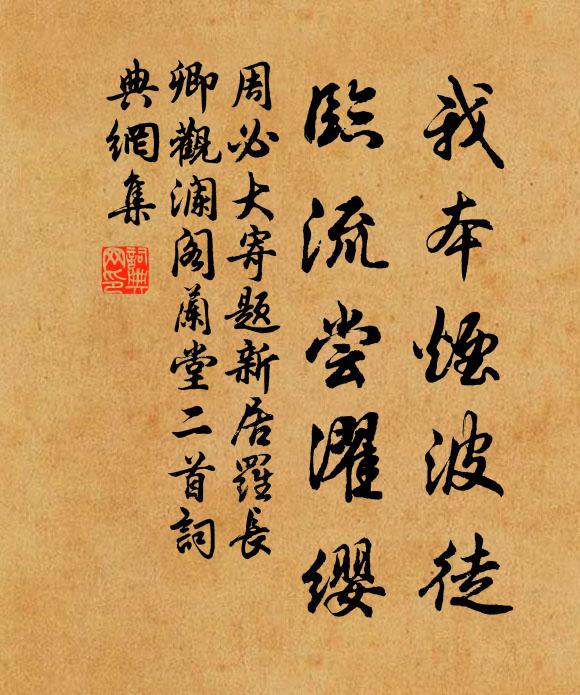 我本煙波徒
臨流尝濯纓
周必大寄題新居羅長
卿觀瀾阁蘭堂二首詞
典網集
詞典
网印